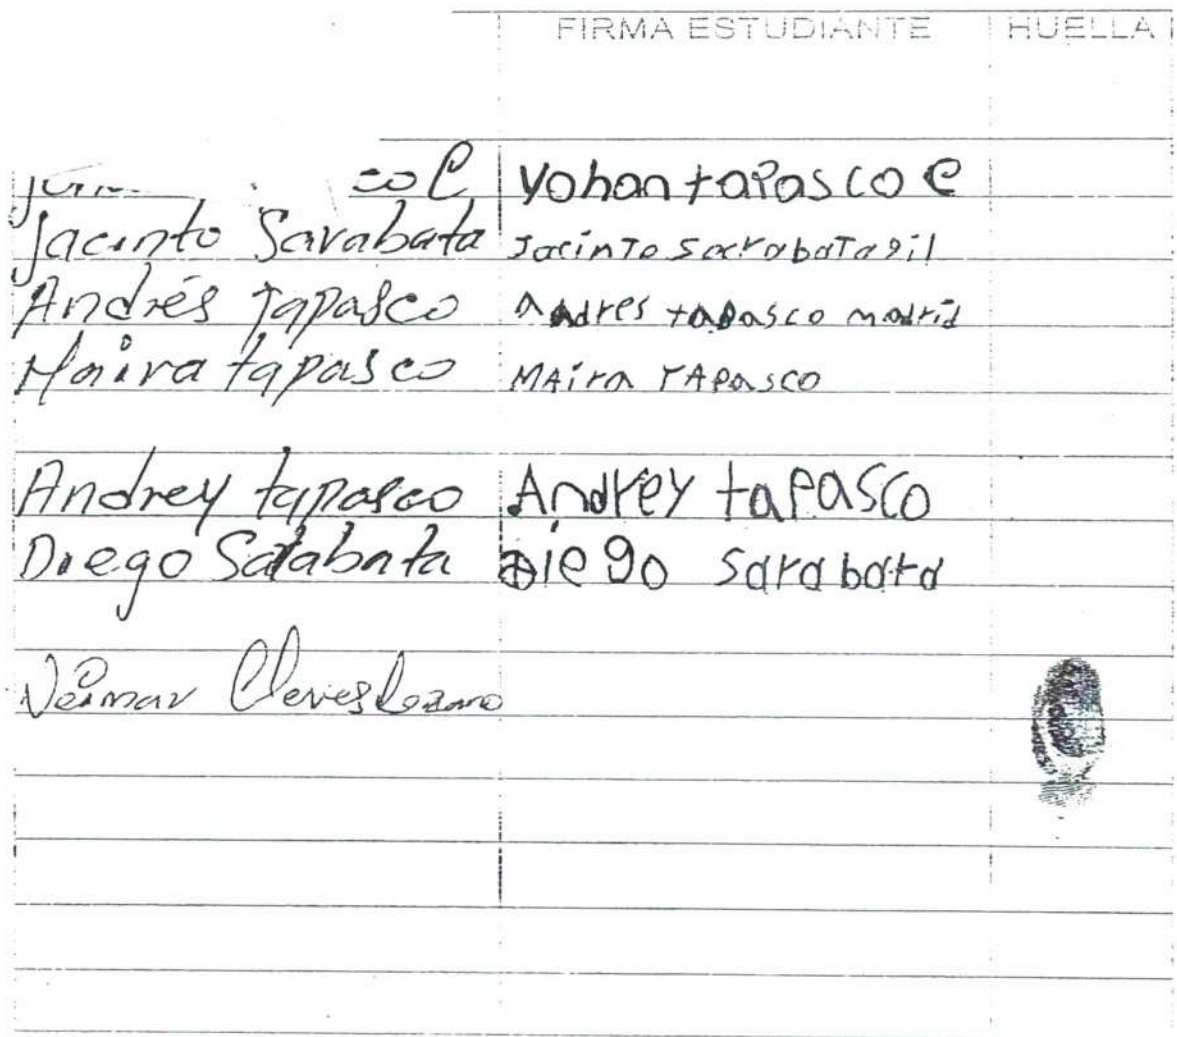 FIRMA ESTUDIANTE HUELLA
co C Yohan tapasco C
Jacinto Sarabata Jacinto sarabata gil
Andrés Tapasco Andres tapasco madrid
Maira tapasco MAira TAPasco
Andrey tapasco Andrey taPasco
Diego Sarabata Diego Sarabata
Neimar Cleves Lozano